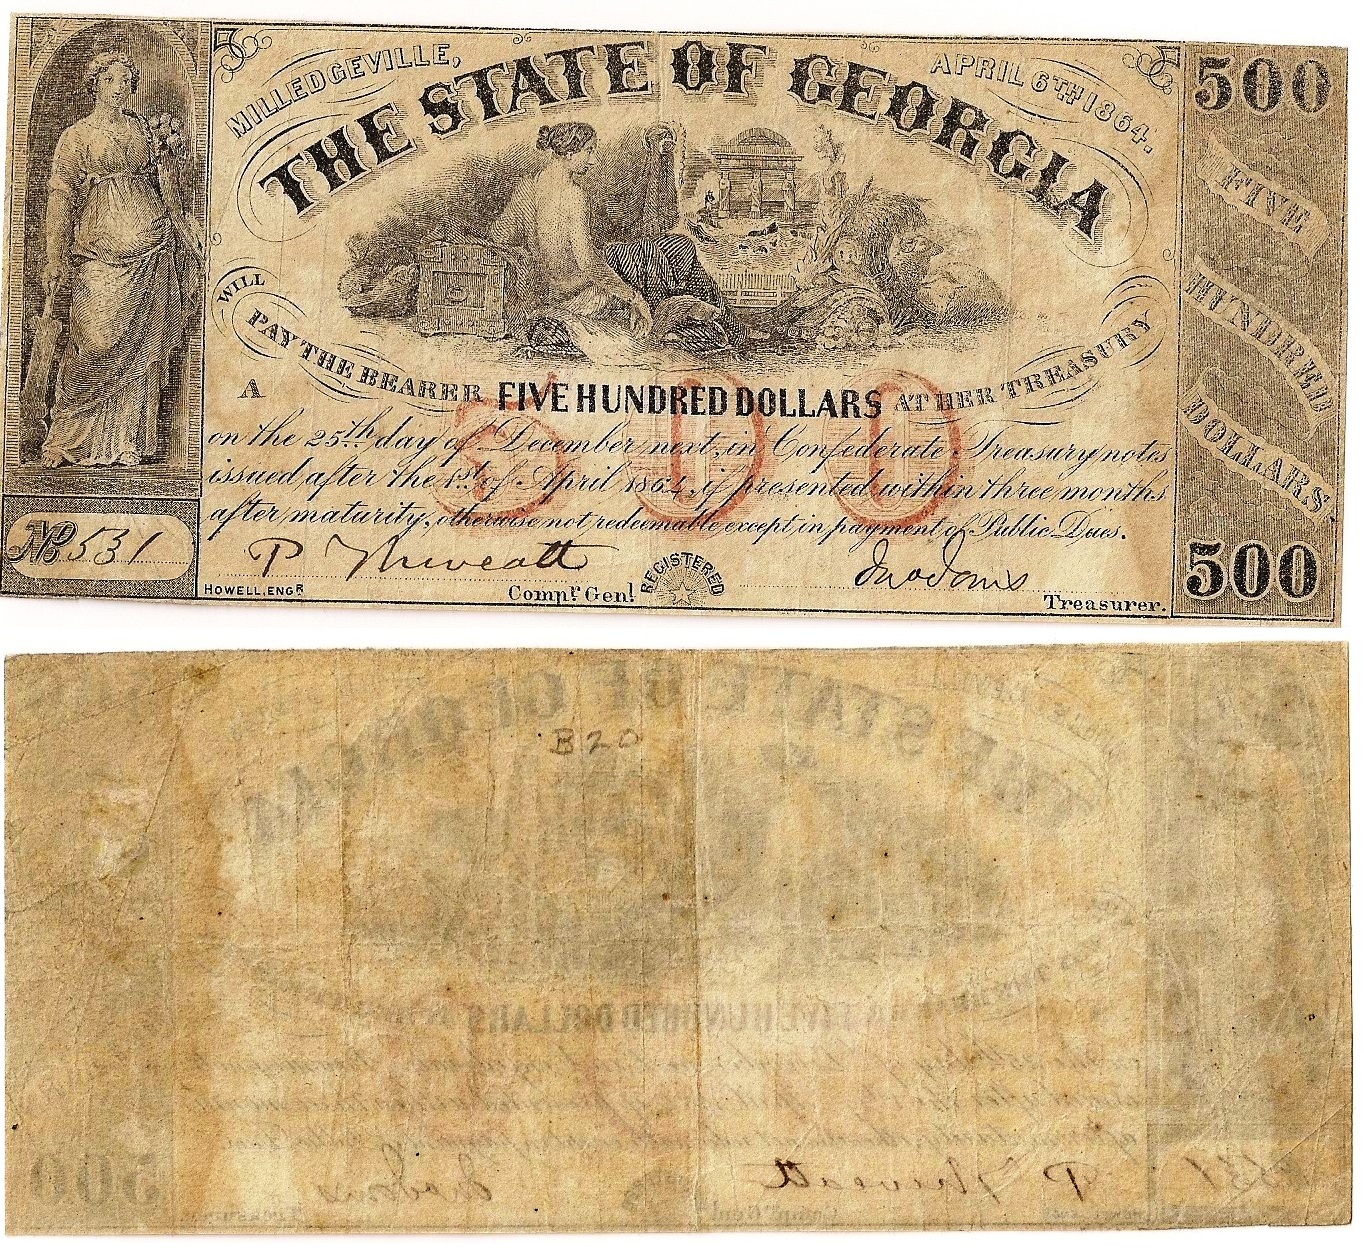 MILLEDGEVILLE,
APRIL 6TH 1864.
THE STATE OF GEORGIA
500
FIVE
HUNDRED
DOLLARS
500
WILL
PAY THE BEARER FIVE HUNDRED DOLLARS AT HER TREASURY
A
500
on the 25th day of December next, in Confederate Treasury notes
issued after the 1st of April 1864, if presented within three months
after maturity, otherwise not redeemable except in payment of Public Dues.
No 531
P Thweatt
Jno Jones
HOWELL, ENGR
Compr Genl
REGISTERED
Treasurer.
B20